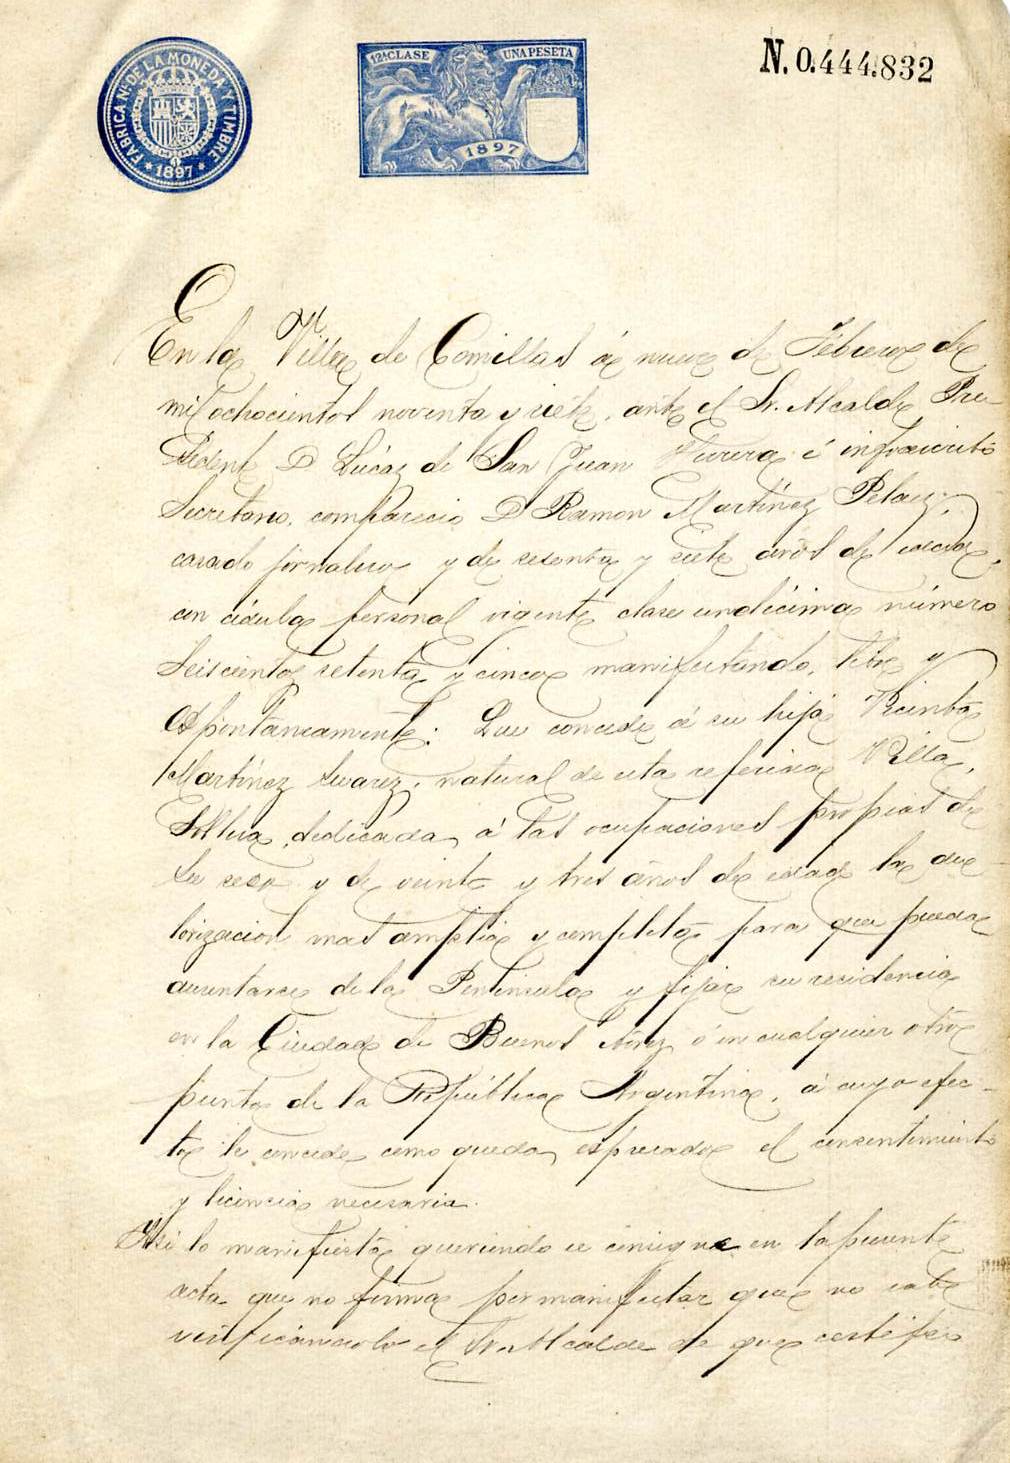 FABRICA Nˡ. DE LA MONEDA Y TIMBRE
* 1897 *
12ª CLASE UNA PESETA
1897
N. 0.444.832
En la Villa de Comillas á nueve de Febrero de
mil ochocientos noventa y siete, ante el Sr. Alcalde Pre-
sidente D Lúcas de San Juan é infrascrito
Secretario, comparecio D Ramon Martínez Pelaez,
casado jornalero y de sesenta y siete años de edad,
con cédula personal vigente clase undécima número
Seiscientos setenta y cinco manifestando, libre y
Espontaneamente: Que concede á su hija Vicenta
Martínez Suarez, natural de esta referida Villa,
Soltera, dedicada á las ocupaciones propias de
su sexo y de veinte y tres años de edad la au-
torizacion mas amplia y completa para que pueda
ausentarse de la Peninsula y fijar su residencia
en la Ciudad de Buenos Aires ó en cualquier otro
punto de la República Argentina, á cuyo efec-
to le concede como queda espresado el consentimiento
y licencia necesaria.
Asi lo manifiesta queriendo se consigne en la presente
acta que no firma por manifestar que no sabe
verificandolo el Sr. Alcalde de que certifico